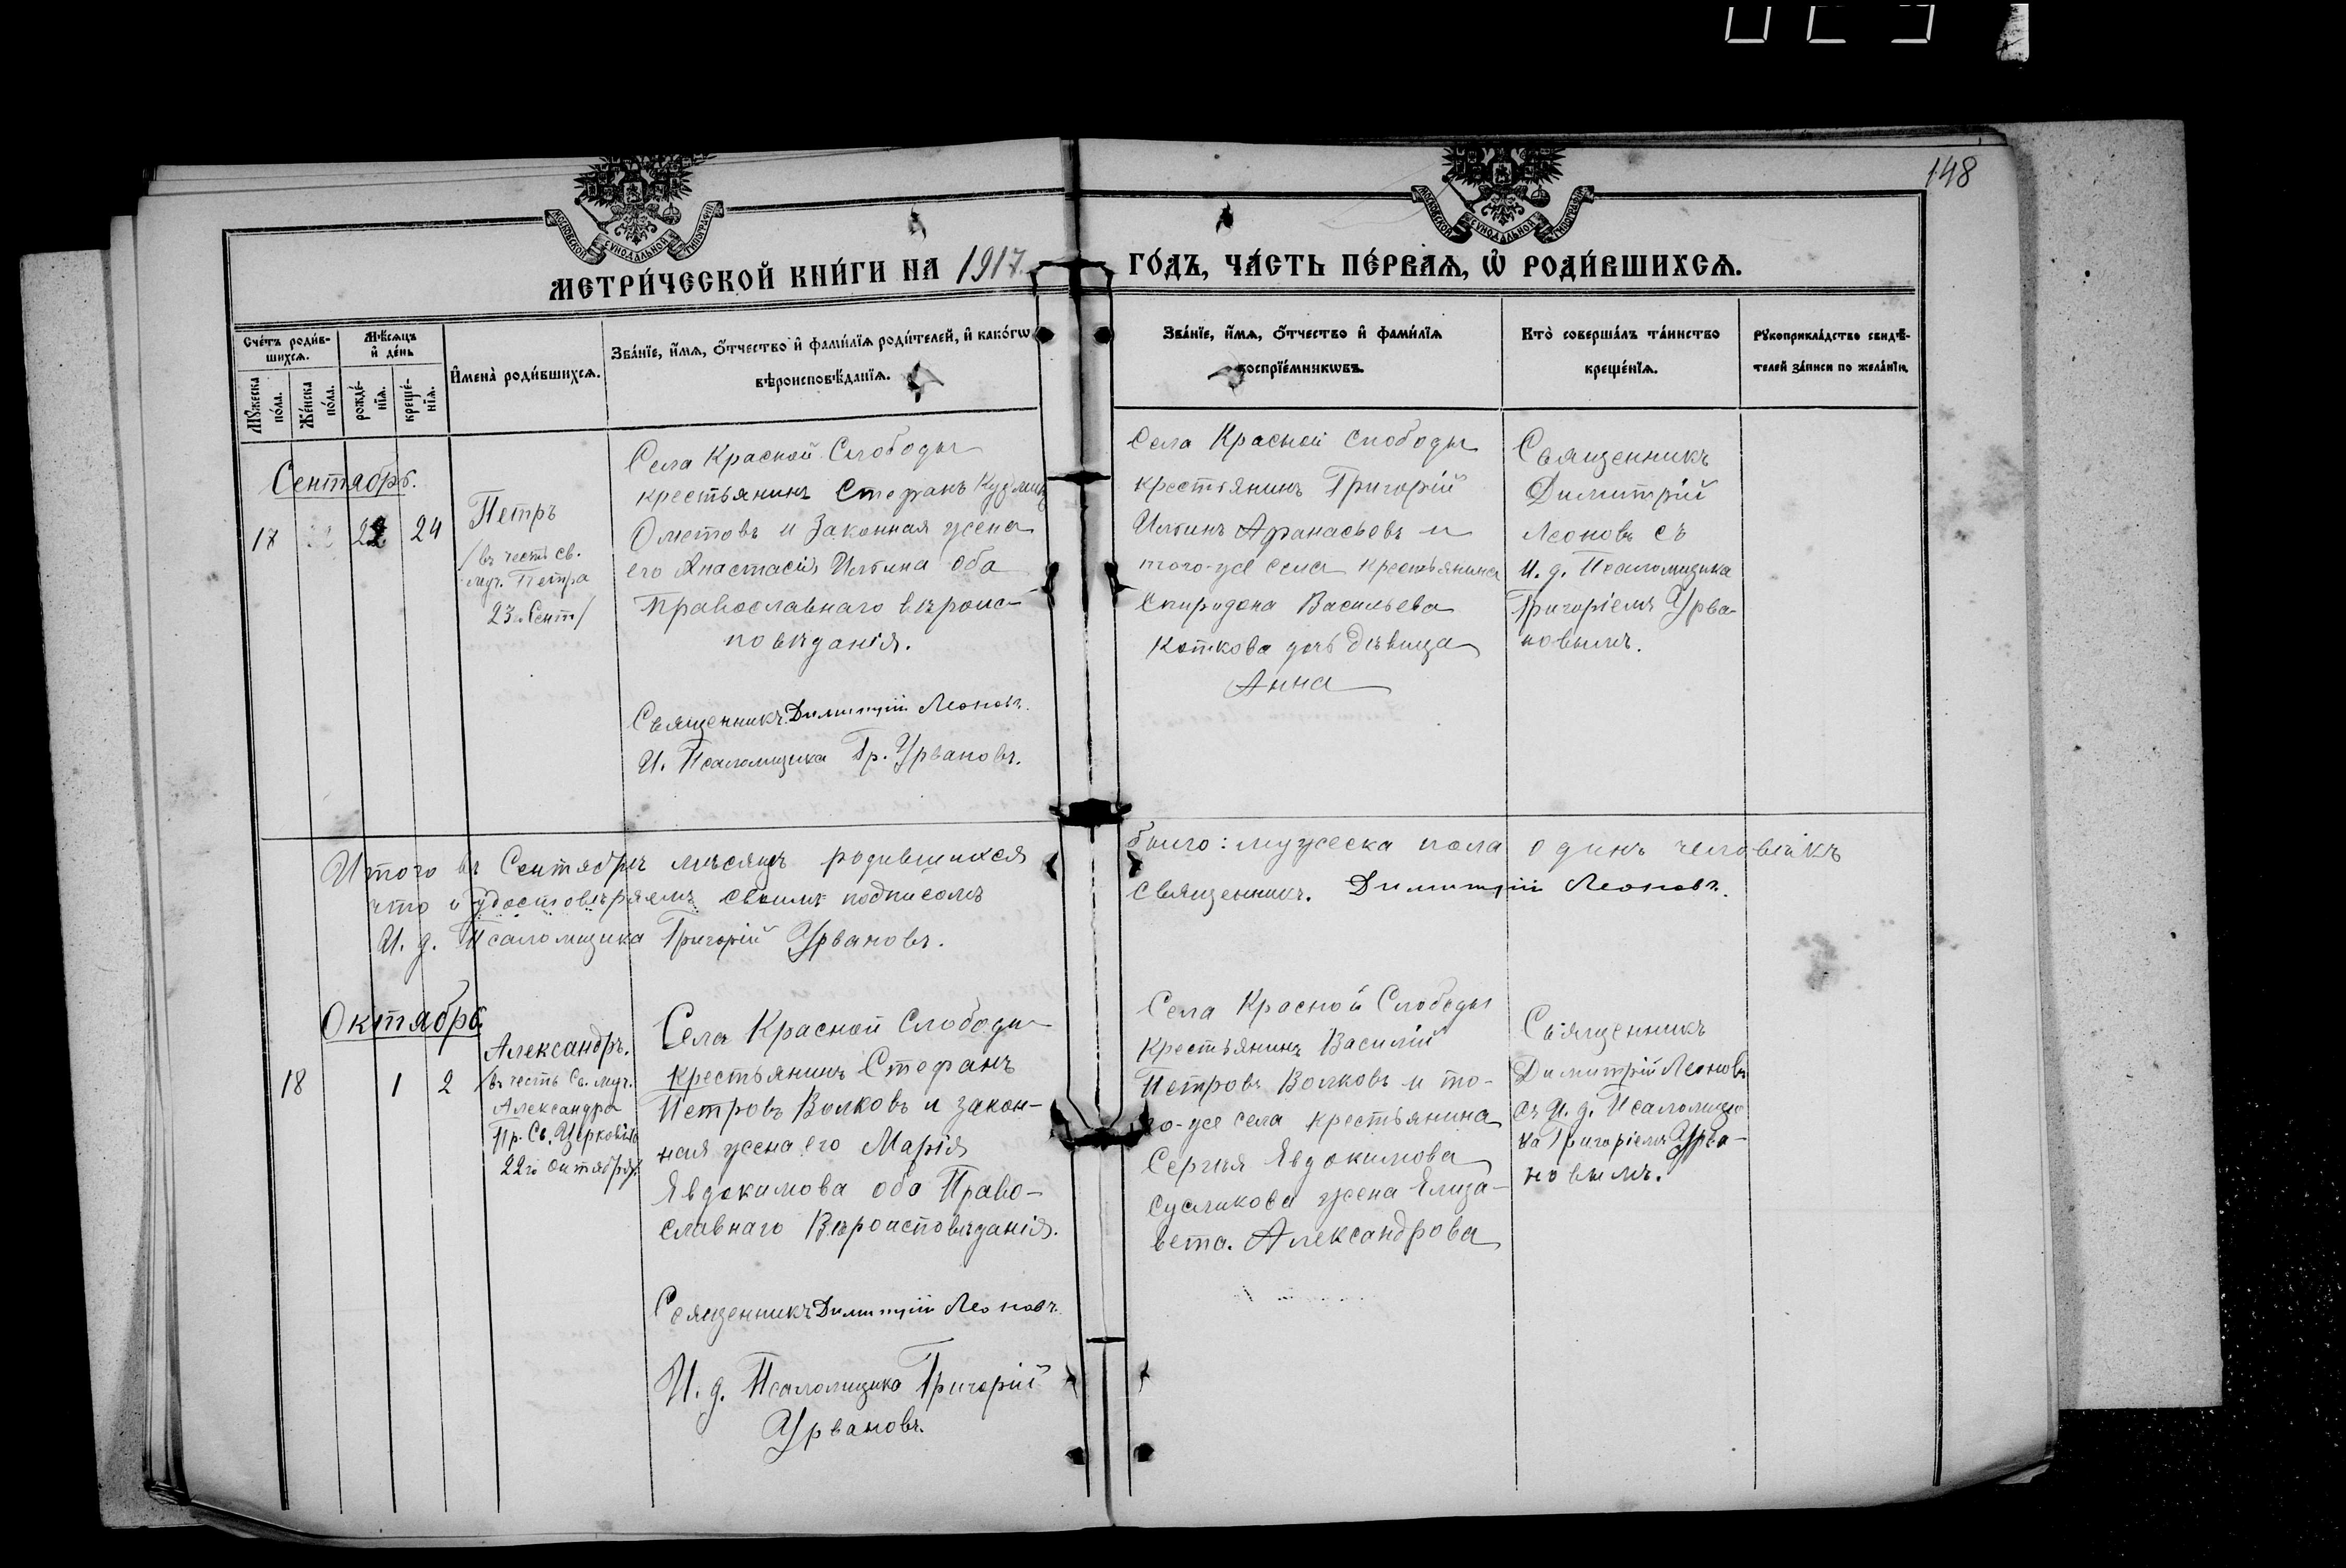 148
МОСКОВСКОЙ СУНОДАЛЬНОЙ ТИПОГРАФІИ
МОСКОВСКОЙ СУНОДАЛЬНОЙ ТИПОГРАФІИ
МЕТРИ́ЧЕСКОЙ КНИ́ГИ НА 1917
ГО́ДЪ, ЧА́СТЬ ПЕ́РВАѦ, Ѡ҆ РОДИ́ВШИХСѦ.
Сче́тъ роди́в-
шихсѧ.
Мꙋ́жеска
по́ла.
Же́нска
по́ла.
Мѣ́сѧцъ
и҆ де́нь
рожде́-
нїѧ.
креще́-
нїѧ.
И҆мена̀ роди́вшихсѧ.
Зва́нїе, и҆́мѧ, ѻ҆́тчество и҆ фами́лїѧ роди́телей, и҆ како́гѡ
вѣроисповѣ́данїѧ.
Зва́нїе, и҆́мѧ, ѻ҆́тчество и҆ фами́лїѧ
воспрїе́мникѡвъ.
Кто̀ соверша́лъ та́инство
креще́нїѧ.
Рꙋкоприкла́дство свидѣ́-
телей за́писи по жела́нїю.
Сентябрь.
17
22
24
Петръ
/въ честь св.
муч. Петра
23 Сент/
Села Красной Слободы
крестьянинъ Стефанъ Кузьминъ
Ометовъ и Законная жена
его Анастасія Ильина оба
Православнаго вѣроис-
повѣданія.
Священникъ Димитрій Леоновъ.
И. Псаломщика Гр. Урвановъ.
Села Красной Слободы
крестьянинъ Григорій
Ильинъ Афанасьевъ и
того-же села крестьянина
Спиридона Васильева
Коткова дочь дѣвица
Анна
Священникъ
Димитрій
Леоновъ съ
И. д. Псаломщика
Григоріемъ Урва-
новымъ.
Итого въ Сентябрѣ мѣсяцѣ родившихся
было: мужеска пола одинъ человѣкъ
что и удостовѣряемъ своимъ подписомъ
Священникъ. Димитрій Леоновъ.
И. д. Псаломщика Григорій Урвановъ.
Октябрь
18
1
2
Александръ.
/въ честь Св. муч.
Александра
Пр. Св. Церковію
22го октября/.
Села Красной Слободы
крестьянинъ Стефанъ
Петровъ Волковъ и закон-
ная жена его Марія
Евдокимова оба Право-
славнаго Вѣроисповѣданія.
Священникъ Димитрій Леоновъ.
И. д. Псаломщика Григорій
Урвановъ.
Села Красной Слободы
Крестьянинъ Василій
Петровъ Волковъ и то-
го-же села крестьянина
Сергѣя Евдокимова
Сусликова жена Елиза-
вета. Александрова
Священникъ
Димитрій Леоновъ
съ И. д. Псаломщи-
ка Григоріемъ Урва-
новымъ.